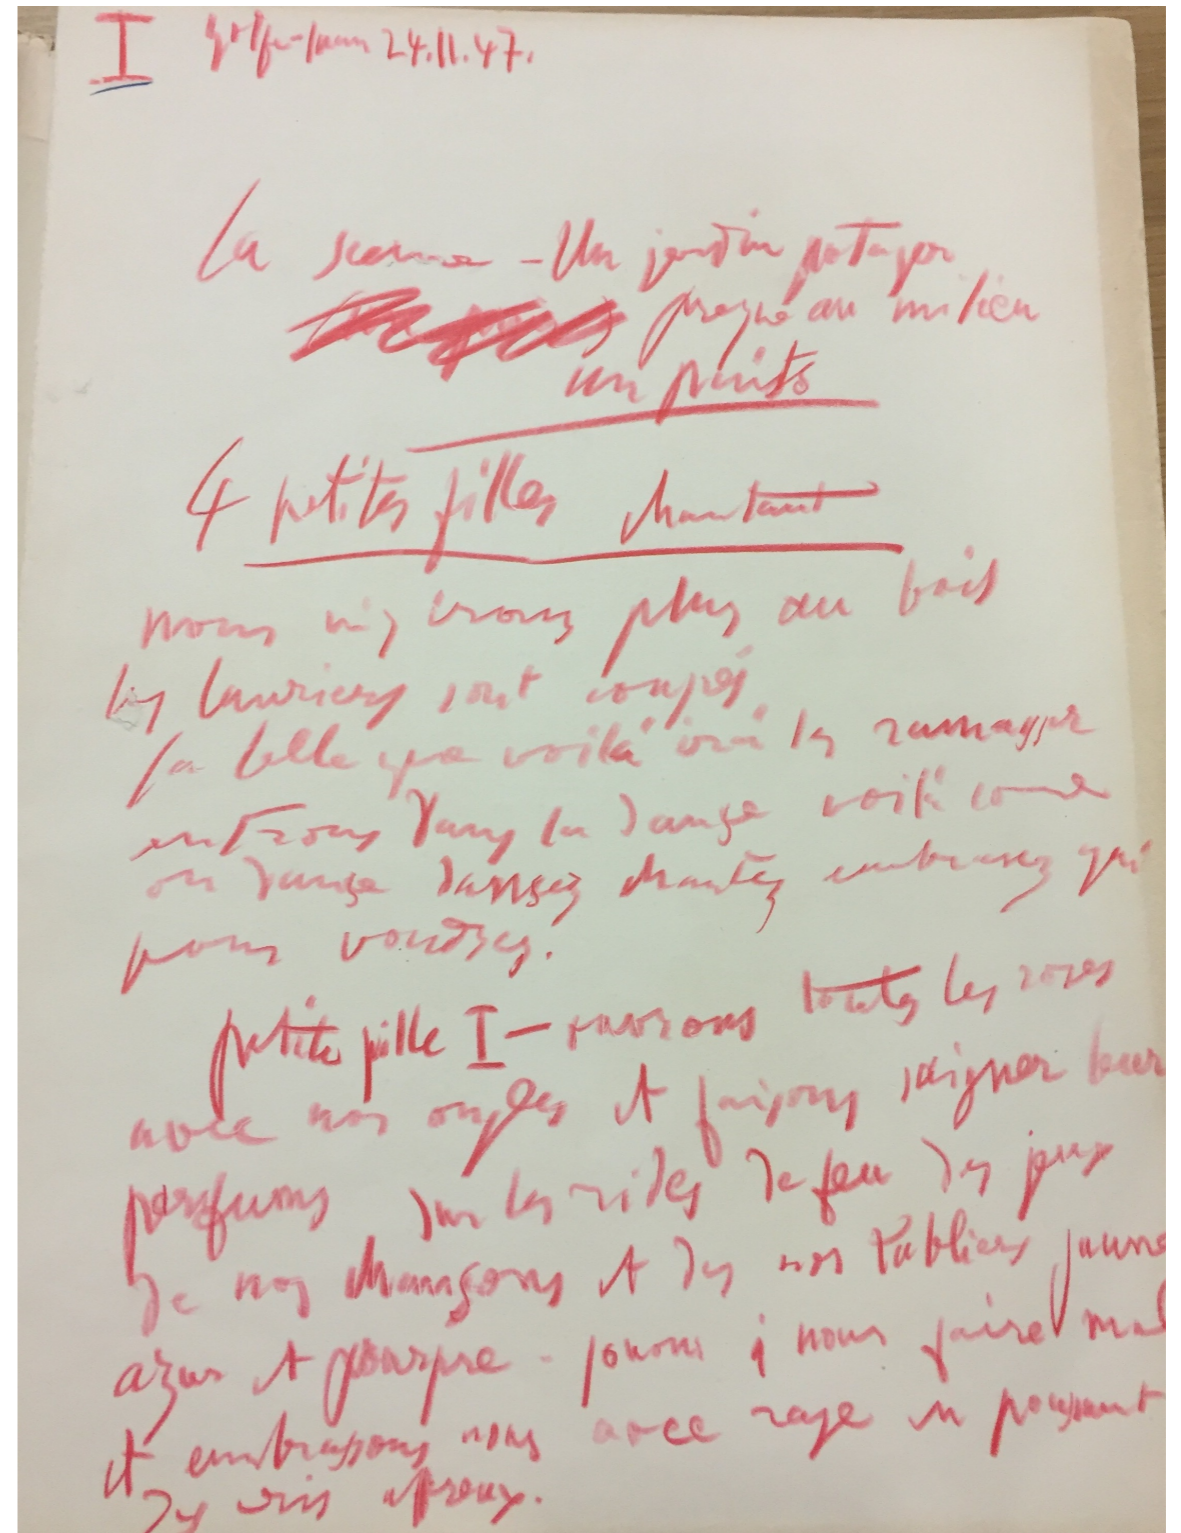 I golfe-juan 24.11.47.
La scene - Un jardin potager
presque au milieu
un puits
4 petites filles chantant
nous n'y irons plus au bois
les lauriers sont coupés
la belle que voilà irà les ramasser
entrons dans la danse voilà come
on danse dansez chantez embrassez qui
vous voudrez.
petite fille I - ouvrons toutes les roses
avec nos ongles et faisons saigner leur
parfums sur les rides de feu des jeux
de nos chansons et des nos tabliers jaune
azur et pourpre - jouons à nous faire mal
et embrassons nous avec rage en poussant
des cris affreux.